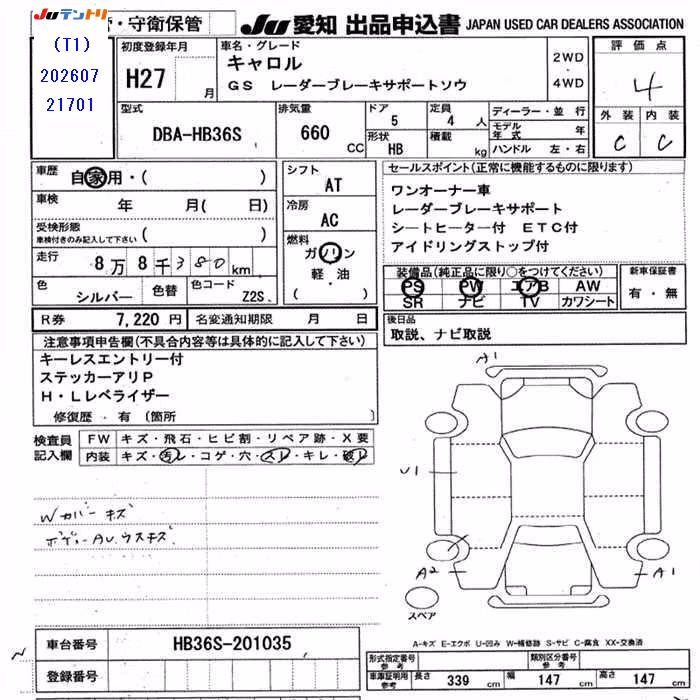 Juテントリ
・守衛保管
JU 愛知 出品申込書 JAPAN USED CAR DEALERS ASSOCIATION
(T1)
202607
21701
初度登録年月
H27 月
車名・グレード
キャロル
GS レーダーブレーキサポートソウ
2WD
・
4WD
評価点
4
外装 内装
C C
型式
DBA-HB36S
排気量
660 CC
ドア
5
定員
4 人
形状
HB
積載
kg
ディーラー・並行
モデル年式 年
ハンドル 左・右
車歴
自家用・( )
車検 年 月( 日)
受検形態
車検付きのみ記入して下さい ( )
走行 8万8千380km
色 シルバー
色替
色コード Z2S
シフト
AT
冷房
AC
燃料
ガソリン
軽・油
( )
セールスポイント(正常に機能するものに限ります)
ワンオーナー車
レーダーブレーキサポート
シートヒーター付 ETC付
アイドリングストップ付
装備品(純正品に限り○をつけてください)
PS PW エアB AW
SR ナビ TV カワシート
新車保証書
有・無
R券 7,220円 名変通知期限 月 日
後日品
取説、ナビ取説
注意事項申告欄(不具合内容等は具体的に記入して下さい)
キーレスエントリー付
ステッカーアリP
H・Lレベライザー
修復歴・有(箇所 )
検査員
記入欄
FW キズ・飛石・ヒビ割・リペア跡・X要
内装 キズ・汚レ・コゲ・穴・スレ・キレ・破レ
Wカバーキズ
ボディーAU.ウスキズ
A1
U1
A2
A1
スペア
A-キズ E-エクボ U-凹み W-補修跡 S-サビ C-腐食 XX-交換済
車台番号 HB36S-201035
登録番号
形式指定番号
参考
類別区分番号
参考
車庫証明用
参考
長さ 339 cm 幅 147 cm 高さ 147 cm